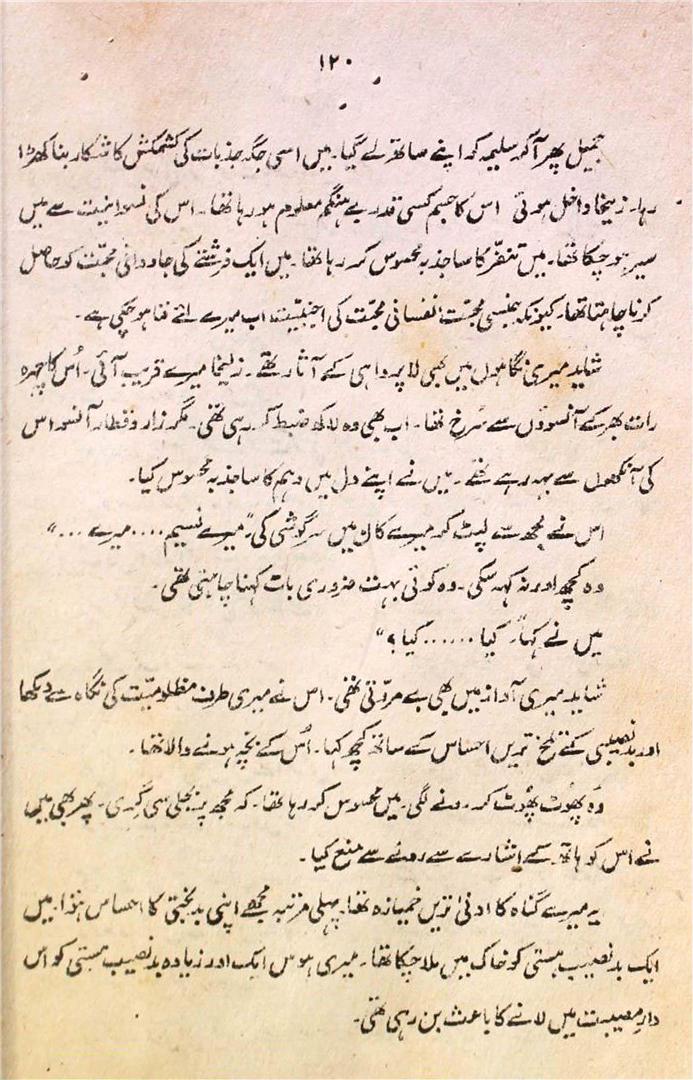 ۱۲۰
جمیل پھر آ کر سلیمہ کو اپنے ساتھ لے گیا۔ میں اسی جگہ جذبات کی کشمکش کا شکار بنا کھڑا
رہا۔ زلیخا داخل ہوئی اس کا جسم کسی قدر بے ہنگم معلوم ہو رہا تھا۔ اس کی نسوانیت سے میں
سیر ہو چکا تھا۔ میں تنفّر کا سا جذبہ محسوس کر رہا تھا۔ میں ایک فرشتے کی جاودانی محبّت کو حاصل
کرنا چاہتا تھا۔ کیونکہ جنسی محبّت نفسانی محبّت کی اب میرے لئے فنا ہو چکی ہے۔
شاید میری نگاہوں میں بھی لاپرواہی کے آثار تھے۔ زلیخا میرے قریب آئی۔ اُس کا چہرہ
رات بھر کے آنسوؤں سے سُرخ تھا۔ اب بھی وہ لاکھ ضبط کر رہی تھی۔ مگر زار و قطار آنسو اس
کی آنکھوں سے بہہ رہے تھے۔ میں نے اپنے دل میں رحم کا سا جذبہ محسوس کیا۔
اس نے مجھ سے لپٹ کر میرے کان میں سرگوشی کی "میرے نسیم .... میرے ..."
وہ کچھ اور نہ کہہ سکی۔ وہ کوئی بہت ضروری بات کہنا چاہتی تھی۔
میں نے کہا۔ "کیا ...... کیا ؟"
شاید میری آواز میں بھی بے مروّتی تھی۔ اس نے میری طرف مظلومیّت کی نگاہ سے دیکھا
اور بدنصیبی کے تلخ ترین احساس کے ساتھ کچھ کہا۔ اُس کے بچّہ ہونے والا تھا۔
وہ پھُوٹ پھُوٹ کر رونے لگی۔ میں محسوس کر رہا تھا۔ کہ مجھ پر بجلی سی گِری۔ پھر بھی میں
نے اس کو ہاتھ کے اشارے سے رونے سے منع کیا۔
یہ میرے گناہ کا ادنیٰ ترین خمیازہ تھا۔ پہلی مرتبہ مجھے اپنی بدبختی کا احساس ہؤا۔ میں
ایک بدنصیب ہستی کو خاک میں ملا چکا تھا۔ میری ہوس ایک اور زیادہ بدنصیب ہستی کو اس
دارِ مصیبت میں لانے کا باعث بن رہی تھی۔